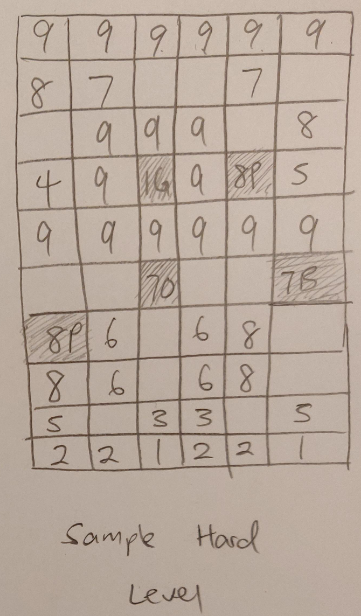 9 9 9 9 9 9
8 7 7
9 9 9 8
4 9 1G 9 8P 5
9 9 9 9 9 9
70 7B
8P 6 6 8
8 6 6 8
5 3 3 5
2 2 1 2 2 1
Sample Hard
Level